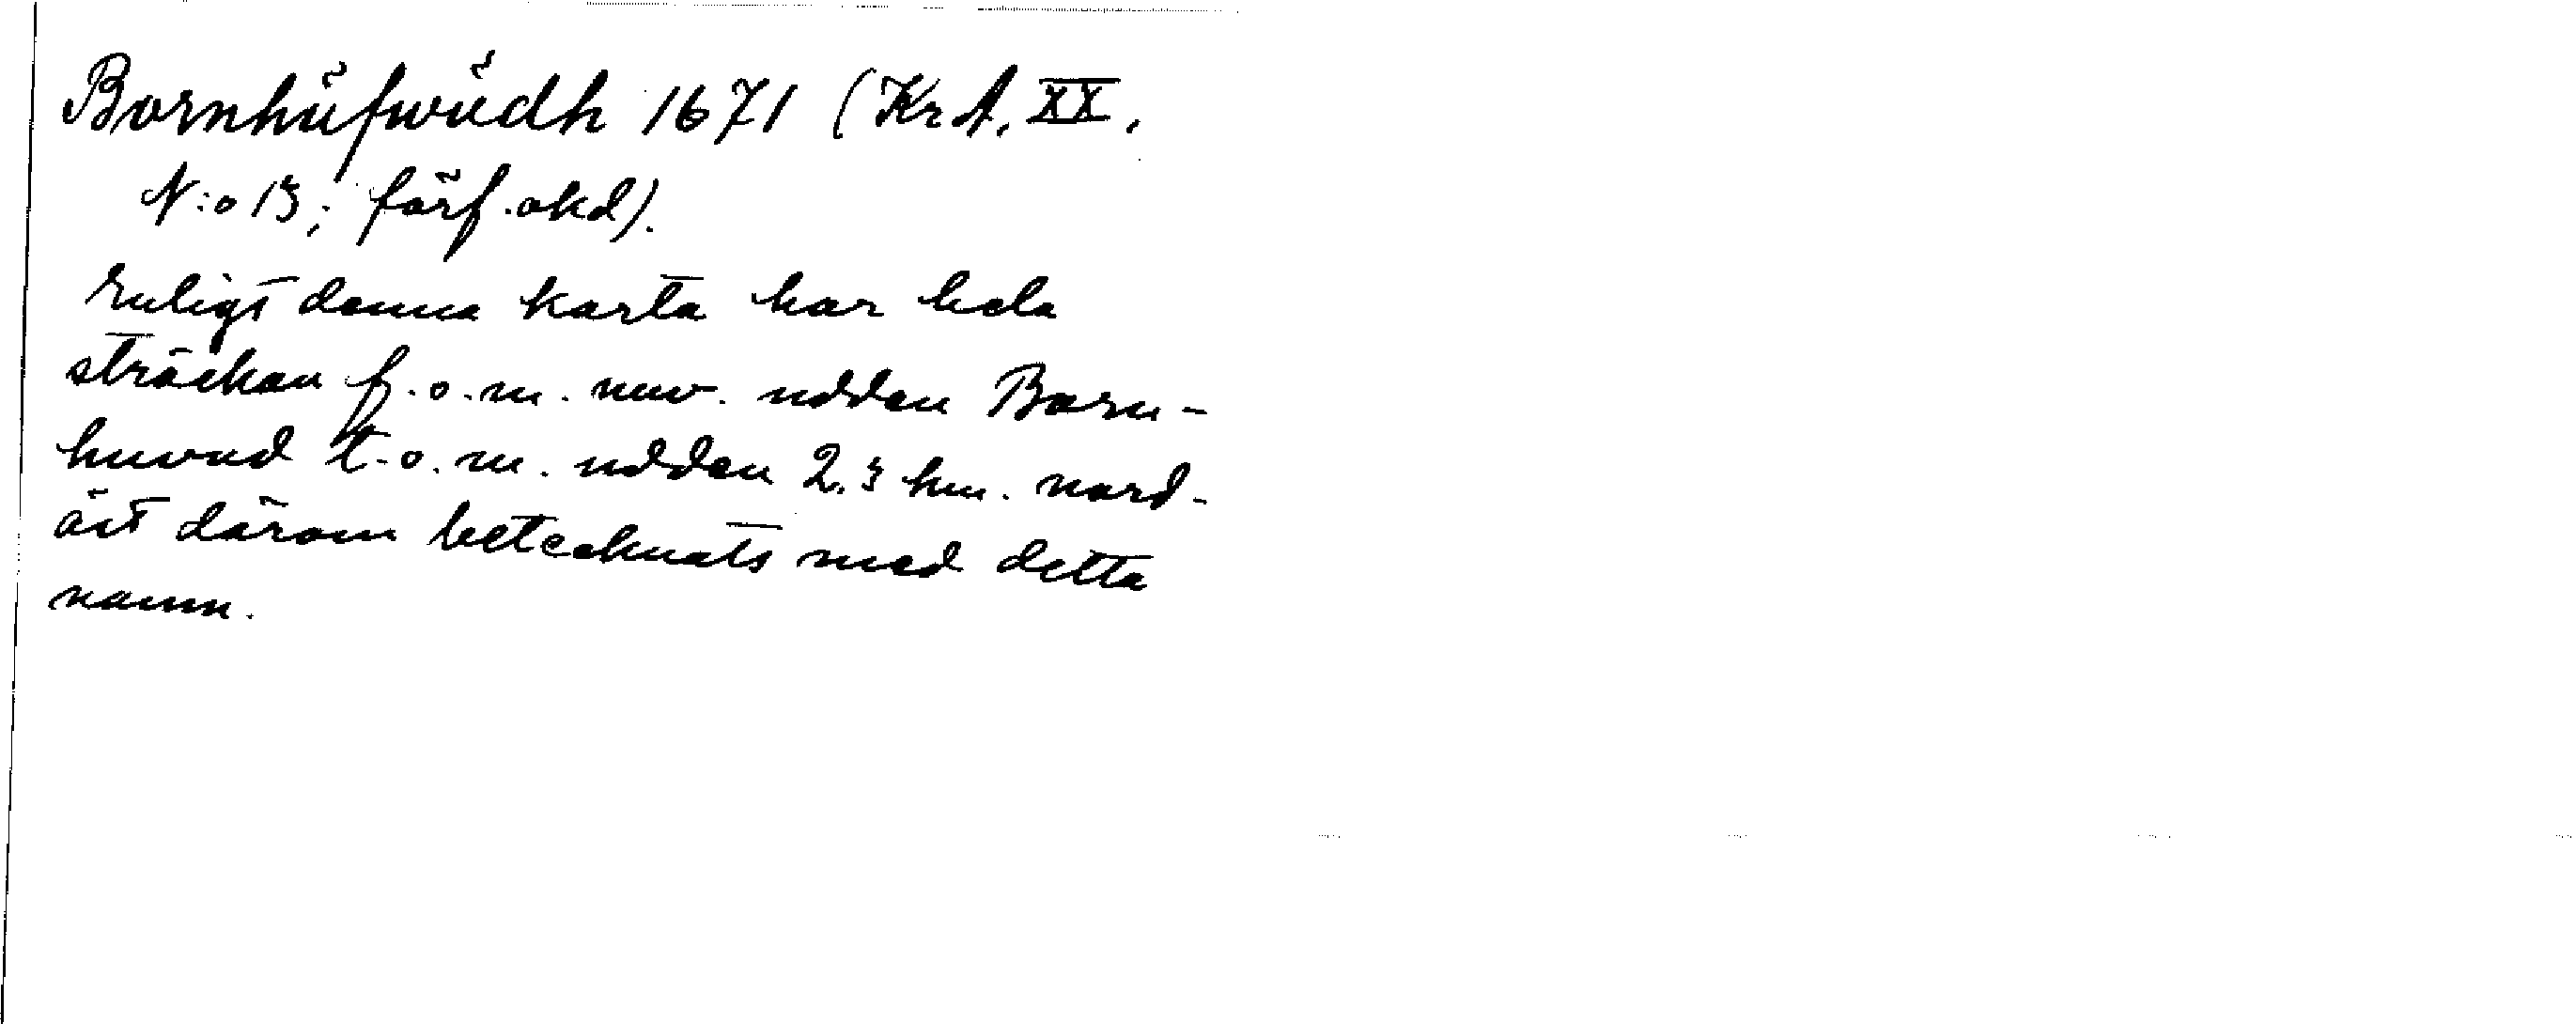 Bornhüfwüdh 1671 (Kr.A. XX,
N:o 13; förf. okd).
Enligt denna karta har hela
sträckan fr.o.m. nuv. udden Born-
huvud t.o.m. udden 2.3 km. nord-
öst därom betecknats med detta
namn.